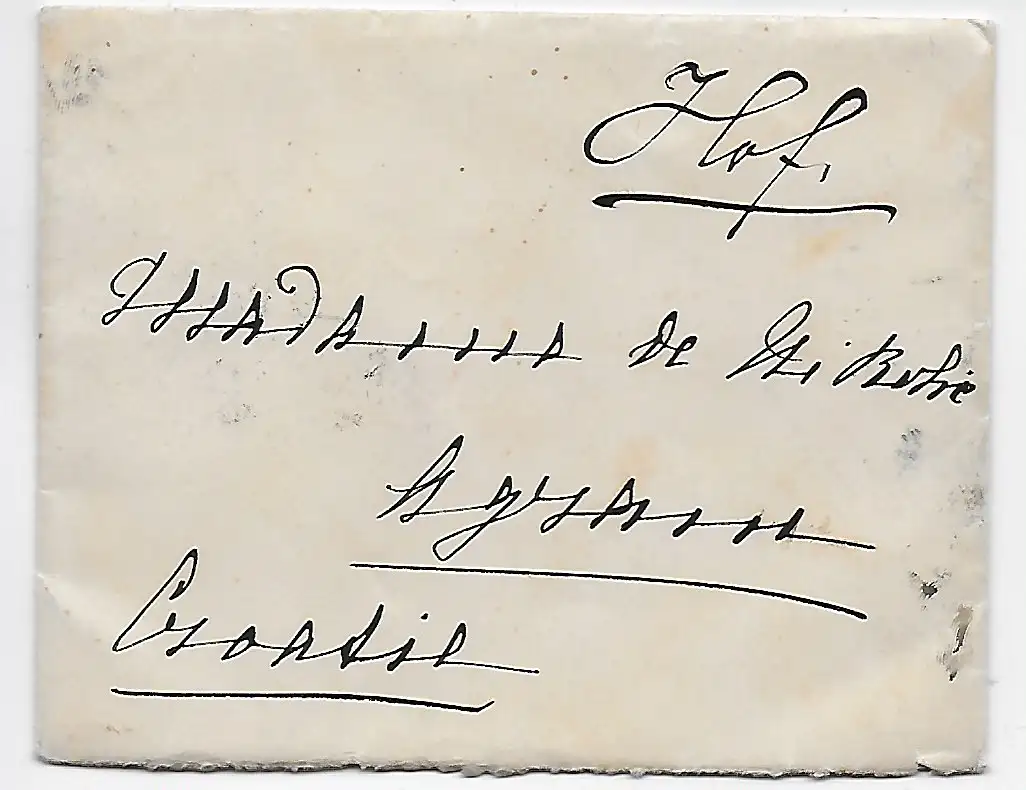 Hof.
Madame de Nikolić
Agram
Croatie